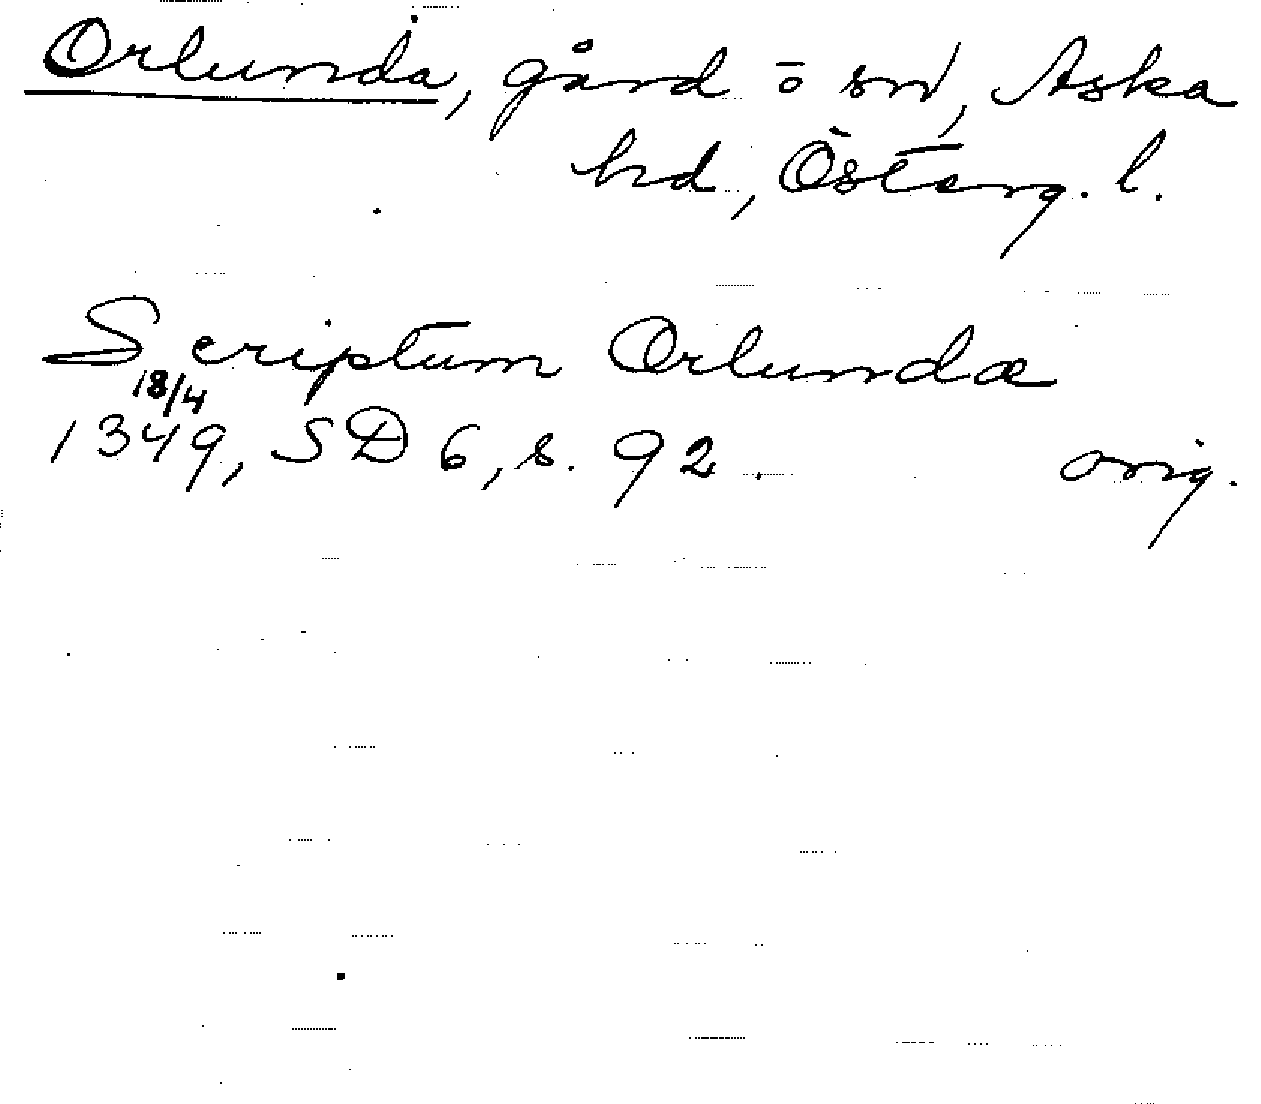 Orlunda, gård ō sn, Aska
hd, Österg. l.
Scriptum Orlundæ
18/4
1349, SD 6, s. 92. orig.